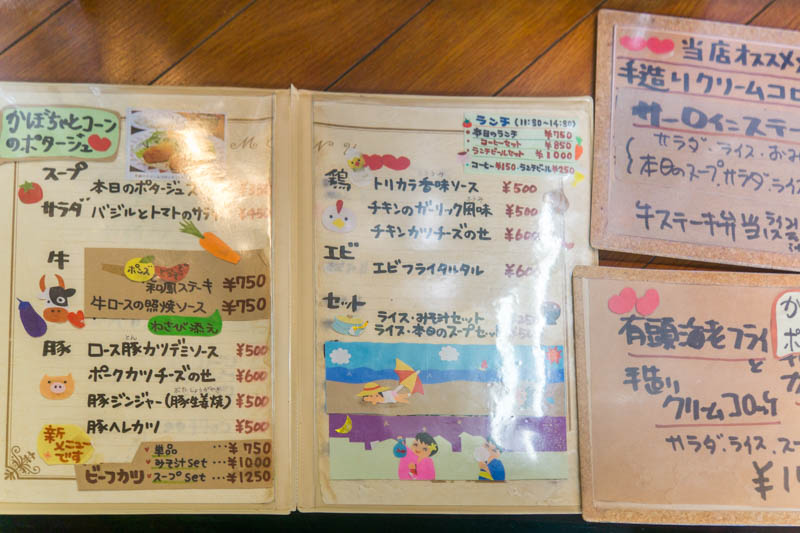 かぼちゃとコーン
のポタージュ
スープ
本日のポタージュス ¥350
サラダ バジルとトマトのサラダ ¥450
牛
ポンズ
和風ステーキ ¥750
牛ロースの照焼ソース ¥750
わさび添え
豚 ロース豚カツデミソース ¥500
ポークカツチーズのせ ¥600
豚ジンジャー(豚生姜焼) ¥500
豚ヘレカツ ¥500
新
メニュー
です
ビーフカツ
単品 … ¥750
みそ汁set … ¥1000
スープset … ¥1250
ランチ (11:30~14:30)
本日のランチ ¥750
コーヒーセット ¥850
ランチビールセット ¥1000
コーヒー¥150・ランチビール¥250
鶏 トリカラ香味ソース ¥500
チキンのガーリック風味 ¥500
チキンカツチーズのせ ¥600
エビ
エビフライタルタル ¥600
セット
ライス・みそ汁セット
ライス・本日のスープセット
当店オススメ
手造りクリームコロ
サーロインステー
サラダ・ライス・おみ
本日のスープ、サラダ、ライス
牛ステーキ弁当
有頭海老フライ
と
手造り
クリームコロッケ
サラダ、ライス、スー